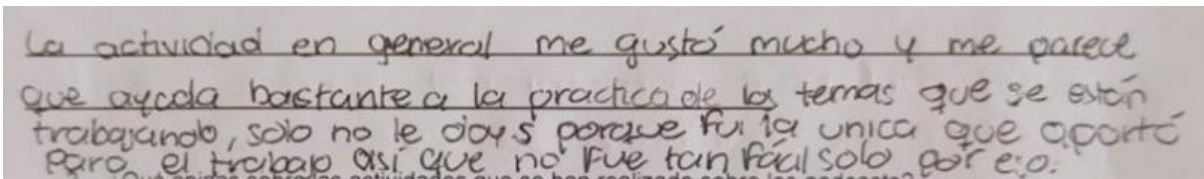 La actividad en general me gustó mucho y me parece
que ayuda bastante a la practica de los temas que se están
trabajando, solo no le doy 5 porque fui la unica que aportó
para el trabajo así que no fue tan fácil solo por eso.